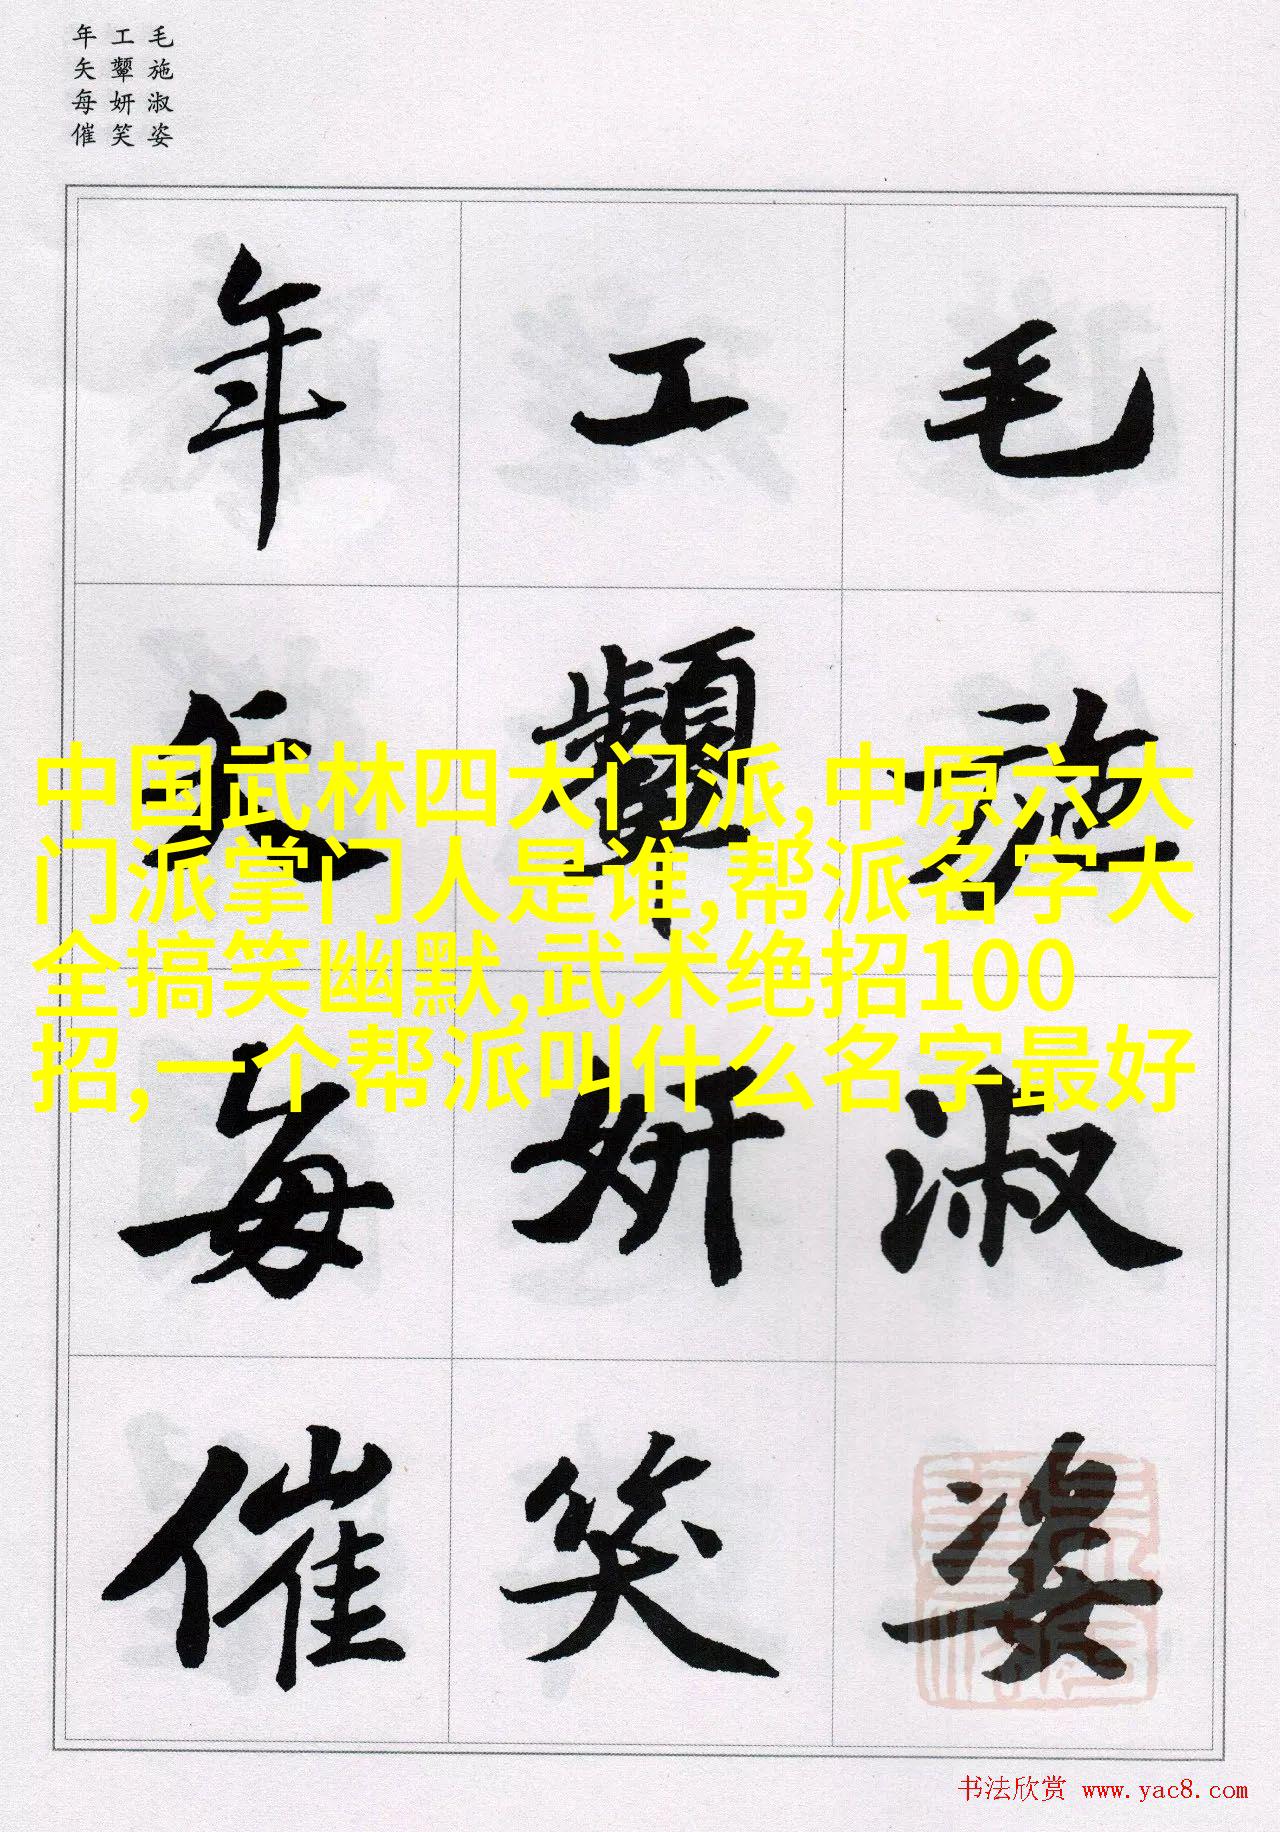 毛施淑姿
工顰妍笑
年矢每催
毛施淑姿
工顰妍笑
年矢每催
中国武林四大门派,中原六大
门派掌门人是谁,帮派名字大
全搞笑幽默,武术绝招100
招,一个帮派叫什么名字最好
书法欣赏 www.yac8.com